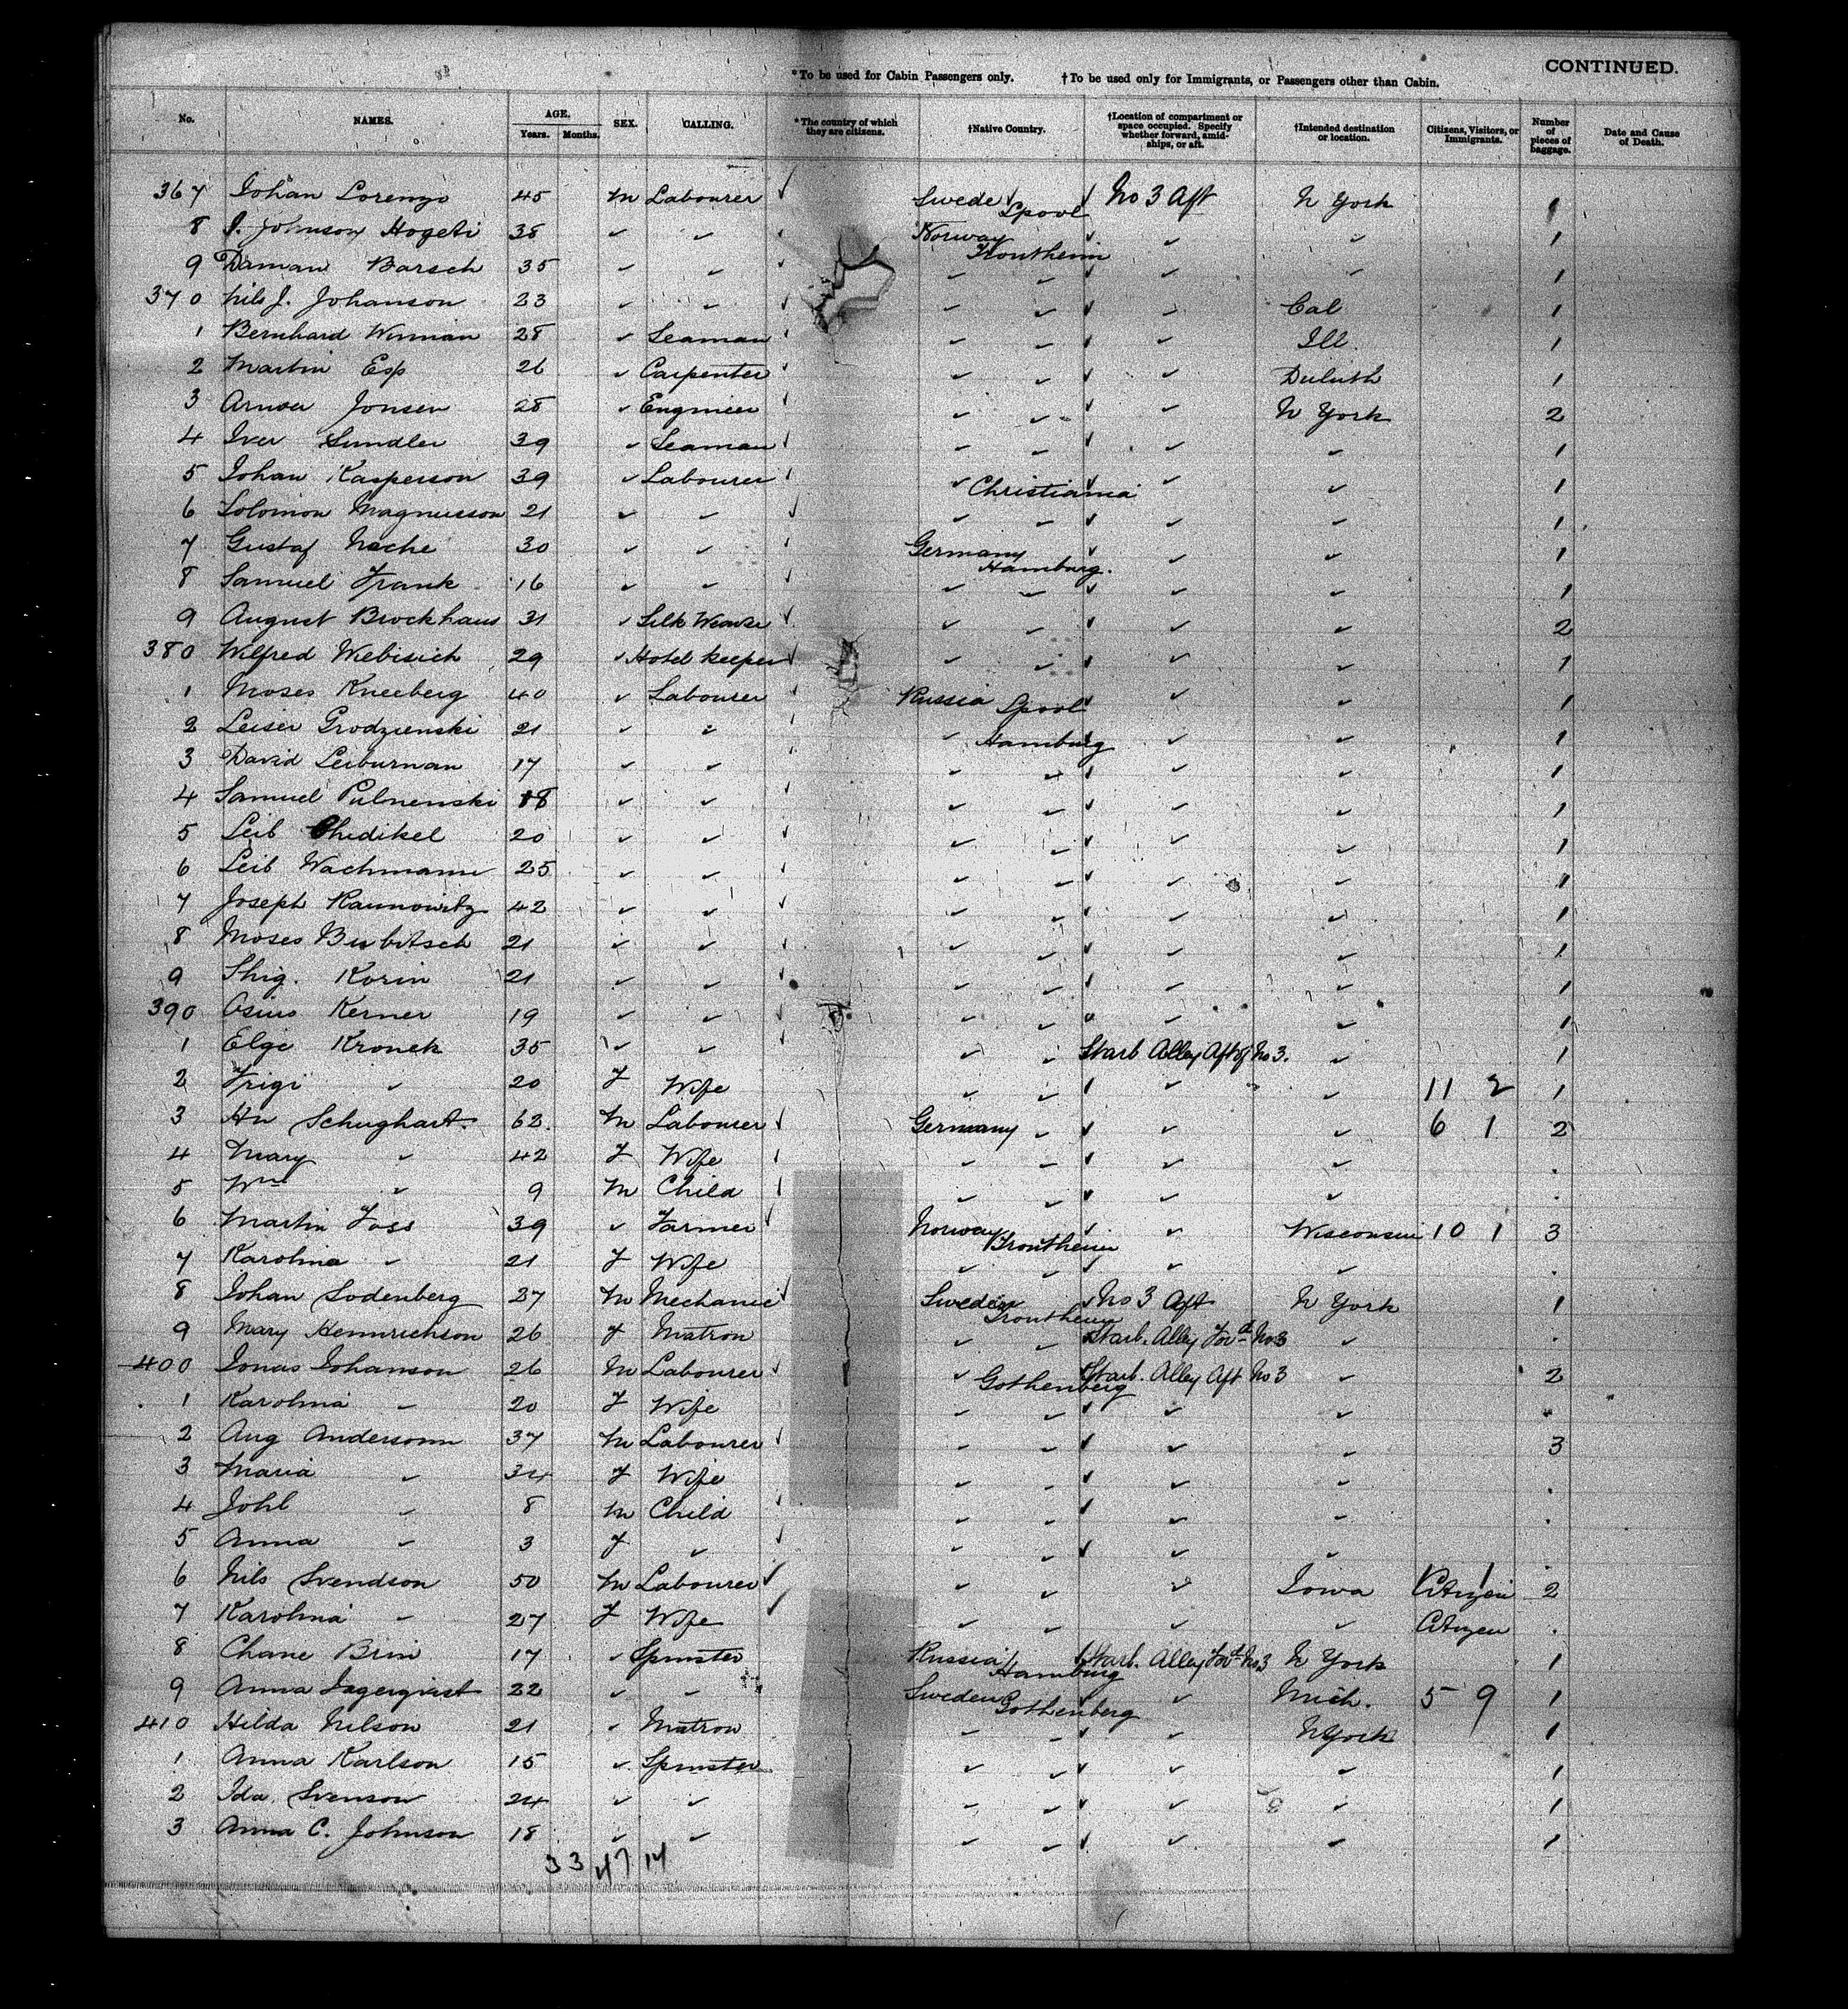 CONTINUED.
*To be used for Cabin Passengers only. †To be used only for Immigrants, or Passengers other than Cabin.
No. NAMES. AGE. Years. Months. SEX. CALLING. *The country of which they are citizens. †Native Country. †Location of compartment or space occupied. Specify whether forward, amidships, or aft. †Intended destination or location. Citizens, Visitors, or Immigrants. Number of pieces of baggage. Date and Cause of Death.
367 Johan Lorenzo 45 M Labourer ✓ Swede Lpool ✓ No 3 Aft N York 1
8 J. Johnson Hogeti 38 ✓ ✓ ✓ Norway Trontheim ✓ ✓ ✓ 1
9 Daman Barsch 35 ✓ ✓ ✓ ✓ ✓ ✓ ✓ ✓ 1
370 Nils J. Johanson 23 ✓ ✓ ✓ ✓ ✓ ✓ ✓ Cal 1
1 Bernhard Wirman 28 ✓ Seaman ✓ ✓ ✓ ✓ ✓ Ill. 1
2 Martin Esp 26 ✓ Carpenter ✓ ✓ ✓ ✓ ✓ Duluth 1
3 Arnoer Jonsen 28 ✓ Engineer ✓ ✓ ✓ ✓ ✓ N York 2
4 Iver Sundler 39 ✓ Seaman ✓ ✓ ✓ ✓ ✓ ✓ 1
5 Johan Kasperson 39 ✓ Labourer ✓ ✓ Christiania ✓ ✓ ✓ 1
6 Solomon Magnusson 21 ✓ ✓ ✓ ✓ ✓ ✓ ✓ ✓ 1
7 Gustaf Nache 30 ✓ ✓ ✓ Germany Hamburg. ✓ ✓ ✓ 1
8 Samuel Frank 16 ✓ ✓ ✓ ✓ ✓ ✓ ✓ ✓ 1
9 August Brockhaus 31 ✓ Silk Weaver ✓ ✓ ✓ ✓ ✓ ✓ 2
380 Wilfred Wiebisich 29 ✓ Hotel keeper ✓ ✓ ✓ ✓ ✓ ✓ 1
1 Moses Kneeberg 40 ✓ Labourer ✓ Russia Lpool ✓ ✓ ✓ 1
2 Leiser Grodzienski 21 ✓ ✓ ✓ ✓ Hamburg ✓ ✓ ✓ 1
3 David Leiburman 17 ✓ ✓ ✓ ✓ ✓ ✓ ✓ ✓ 1
4 Samuel Pulnenski 18 ✓ ✓ ✓ ✓ ✓ ✓ ✓ ✓ 1
5 Leib Chidikel 20 ✓ ✓ ✓ ✓ ✓ ✓ ✓ ✓ 1
6 Leib Wachmann 25 ✓ ✓ ✓ ✓ ✓ ✓ ✓ ✓ 1
7 Joseph Raunowitz 42 ✓ ✓ ✓ ✓ ✓ ✓ ✓ ✓ 1
8 Moses Burbitsch 21 ✓ ✓ ✓ ✓ ✓ ✓ ✓ ✓ 1
9 Shig. Korin 21 ✓ ✓ ✓ ✓ ✓ ✓ ✓ ✓ 1
390 Osius Kerner 19 ✓ ✓ ✓ ✓ ✓ ✓ ✓ ✓ 1
1 Elge Kronek 35 ✓ ✓ ✓ ✓ ✓ Starb Alley Aft of No 3. ✓ 1
2 Frigi ✓ 20 F Wife ✓ ✓ ✓ ✓ ✓ 11 2 1
3 Hn Schughart. 62. M Labourer ✓ Germany ✓ ✓ ✓ ✓ 6 1 2
4 Mary ✓ 42 F Wife ✓ ✓ ✓ ✓ ✓ ✓ .
5 Wm ✓ 9 M Child ✓ ✓ ✓ ✓ ✓ ✓ .
6 Martin Foss 39 ✓ Farmer ✓ Norway Trontheim ✓ ✓ Wisconsin 10 1 3
7 Karolina ✓ 21 F Wife ✓ ✓ ✓ ✓ ✓ .
8 Johan Sodenberg 27 M Mechanic ✓ Sweden Trontheim ✓ No 3 Aft N York 1
9 Mary Hennrichson 26 F Matron ✓ ✓ Starb. Alley Forwd No3 ✓ .
400 Jonas Johanson 26 M Labourer ✓ ✓ Gothenberg Starb. Alley Aft No 3 ✓ 2
1 Karolina ✓ 20 F Wife ✓ ✓ ✓ ✓ ✓ .
2 Aug Andersonn 37 M Labourer ✓ ✓ ✓ ✓ ✓ ✓ 3
3 Maria ✓ 34 F Wife ✓ ✓ ✓ ✓ ✓ .
4 Johl ✓ 8 M Child ✓ ✓ ✓ ✓ ✓ ✓ .
5 Anna ✓ 3 F ✓ ✓ ✓ ✓ ✓ ✓ ✓ .
6 Nils Svendson 50 M Labourer ✓ ✓ ✓ ✓ Iowa Citizen 2
7 Karolina ✓ 27 F Wife ✓ ✓ ✓ ✓ ✓ Citizen .
8 Chane Brin 17 ✓ Spinster Russia Hamburg Starb. Alley Forwd No3 N York 1
9 Anna Lagerqvist 22 ✓ ✓ Sweden Gothenberg ✓ ✓ Mich. 5 9 1
410 Hilda Nilson 21 ✓ Matron ✓ ✓ ✓ ✓ N York 1
1 Anna Karlson 15 ✓ Spinster ✓ ✓ ✓ ✓ ✓ 1
2 Ida Svenson 24 ✓ ✓ ✓ ✓ ✓ ✓ ✓ 1
3 Anna C. Johnson 18 ✓ ✓ ✓ ✓ ✓ ✓ ✓ 1
33 47 14